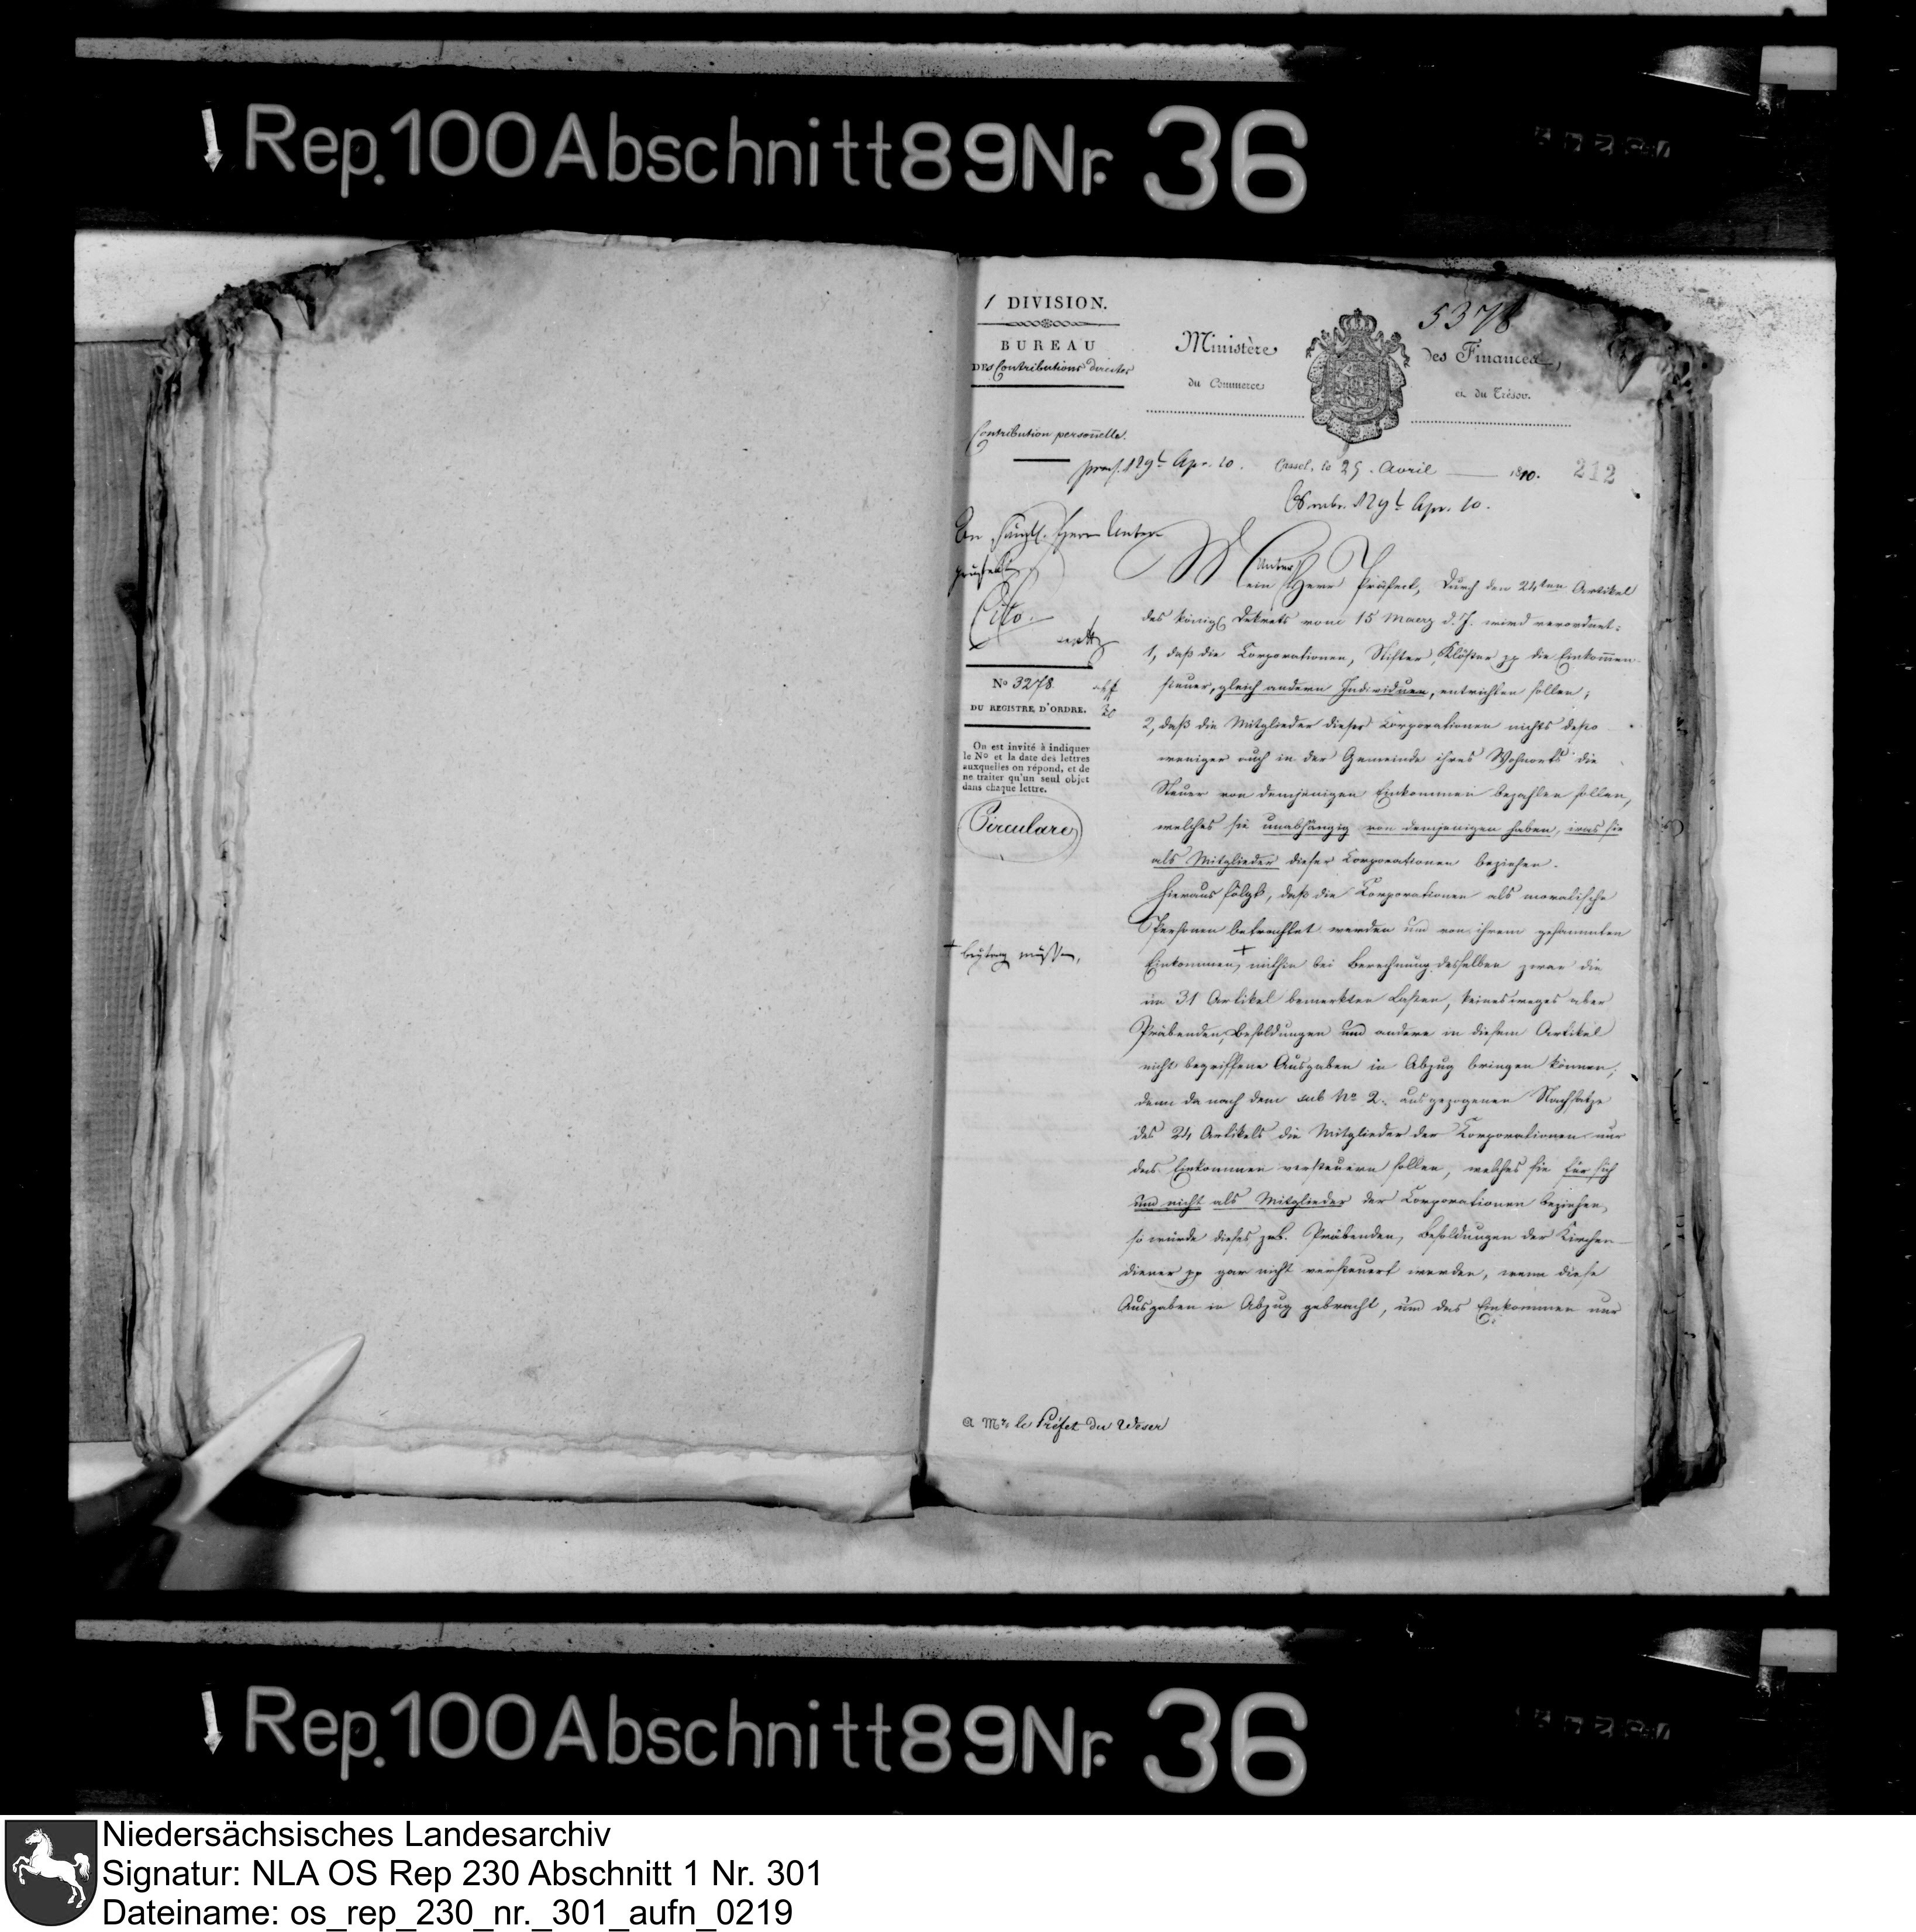 Rep. 100 Abschnitt 89 Nr. 36
1 DIVISION.
BUREAU
DES Contributions directes
Contribution personnelle.
5378
Ministère des Finances,
du Commerce et du Trésor.
praes. d 29t Apr. 10.
Cassel, le 25. Avril 1810.
212
d 29t Apr. 10.
An sämtl. Herrn Unter-
präfekten
Cito.
No 3278
DU REGISTRE D'ORDRE.
On est invité à indiquer
le No et la date des lettres
auxquelles on répond, et de
ne traiter qu'un seul objet
dans chaque lettre.
Circulare
+ beytragen müssen,
Mein Herr Unter Präfect, Durch den 24ten Artikel
des Königl. Dekrets vom 15 Maerz d. J. wird verordnet:
1, daß die Corporationen, Stifter, Klöster pp die Einkommen
steuer, gleich andern Individuen, entrichten sollen;
2, daß die Mitglieder dieser Corporationen nichts desto
weniger auch in der Gemeinde ihres Wohnorts die
Steuer von demjenigen Einkommen bezahlen sollen,
welches sie unabhängig von demjenigen haben, was sie
als Mitglieder dieser Corporationen beziehen.
Hieraus folgt, daß die Corporationen als moralische
Personen betrachtet werden und von ihrem gesammten
Einkommen, + mithin bei Berechnung desselben zwar die
im 31 Artikel bemerkten Lasten, keinesweges aber
Präbenden, Besoldungen und andere in diesem Artikel
nicht begriffene Ausgaben in Abzug bringen können;
denn da nach dem sub No 2. ausgezogenen Nachsatze
des 24 Artikels die Mitglieder der Corporationen nur
das Einkommen versteuern sollen, welches sie für sich
und nicht als Mitglieder der Corporationen beziehen,
so würde dieses, z.B. Präbenden, Besoldungen der Kirchen-
diener pp gar nicht versteuert werden, wenn diese
Ausgaben in Abzug gebracht, und das Einkommen nur
a Mr. le Préfet du Weser
Rep. 100 Abschnitt 89 Nr. 36
Niedersächsisches Landesarchiv
Signatur: NLA OS Rep 230 Abschnitt 1 Nr. 301
Dateiname: os_rep_230_nr._301_aufn_0219